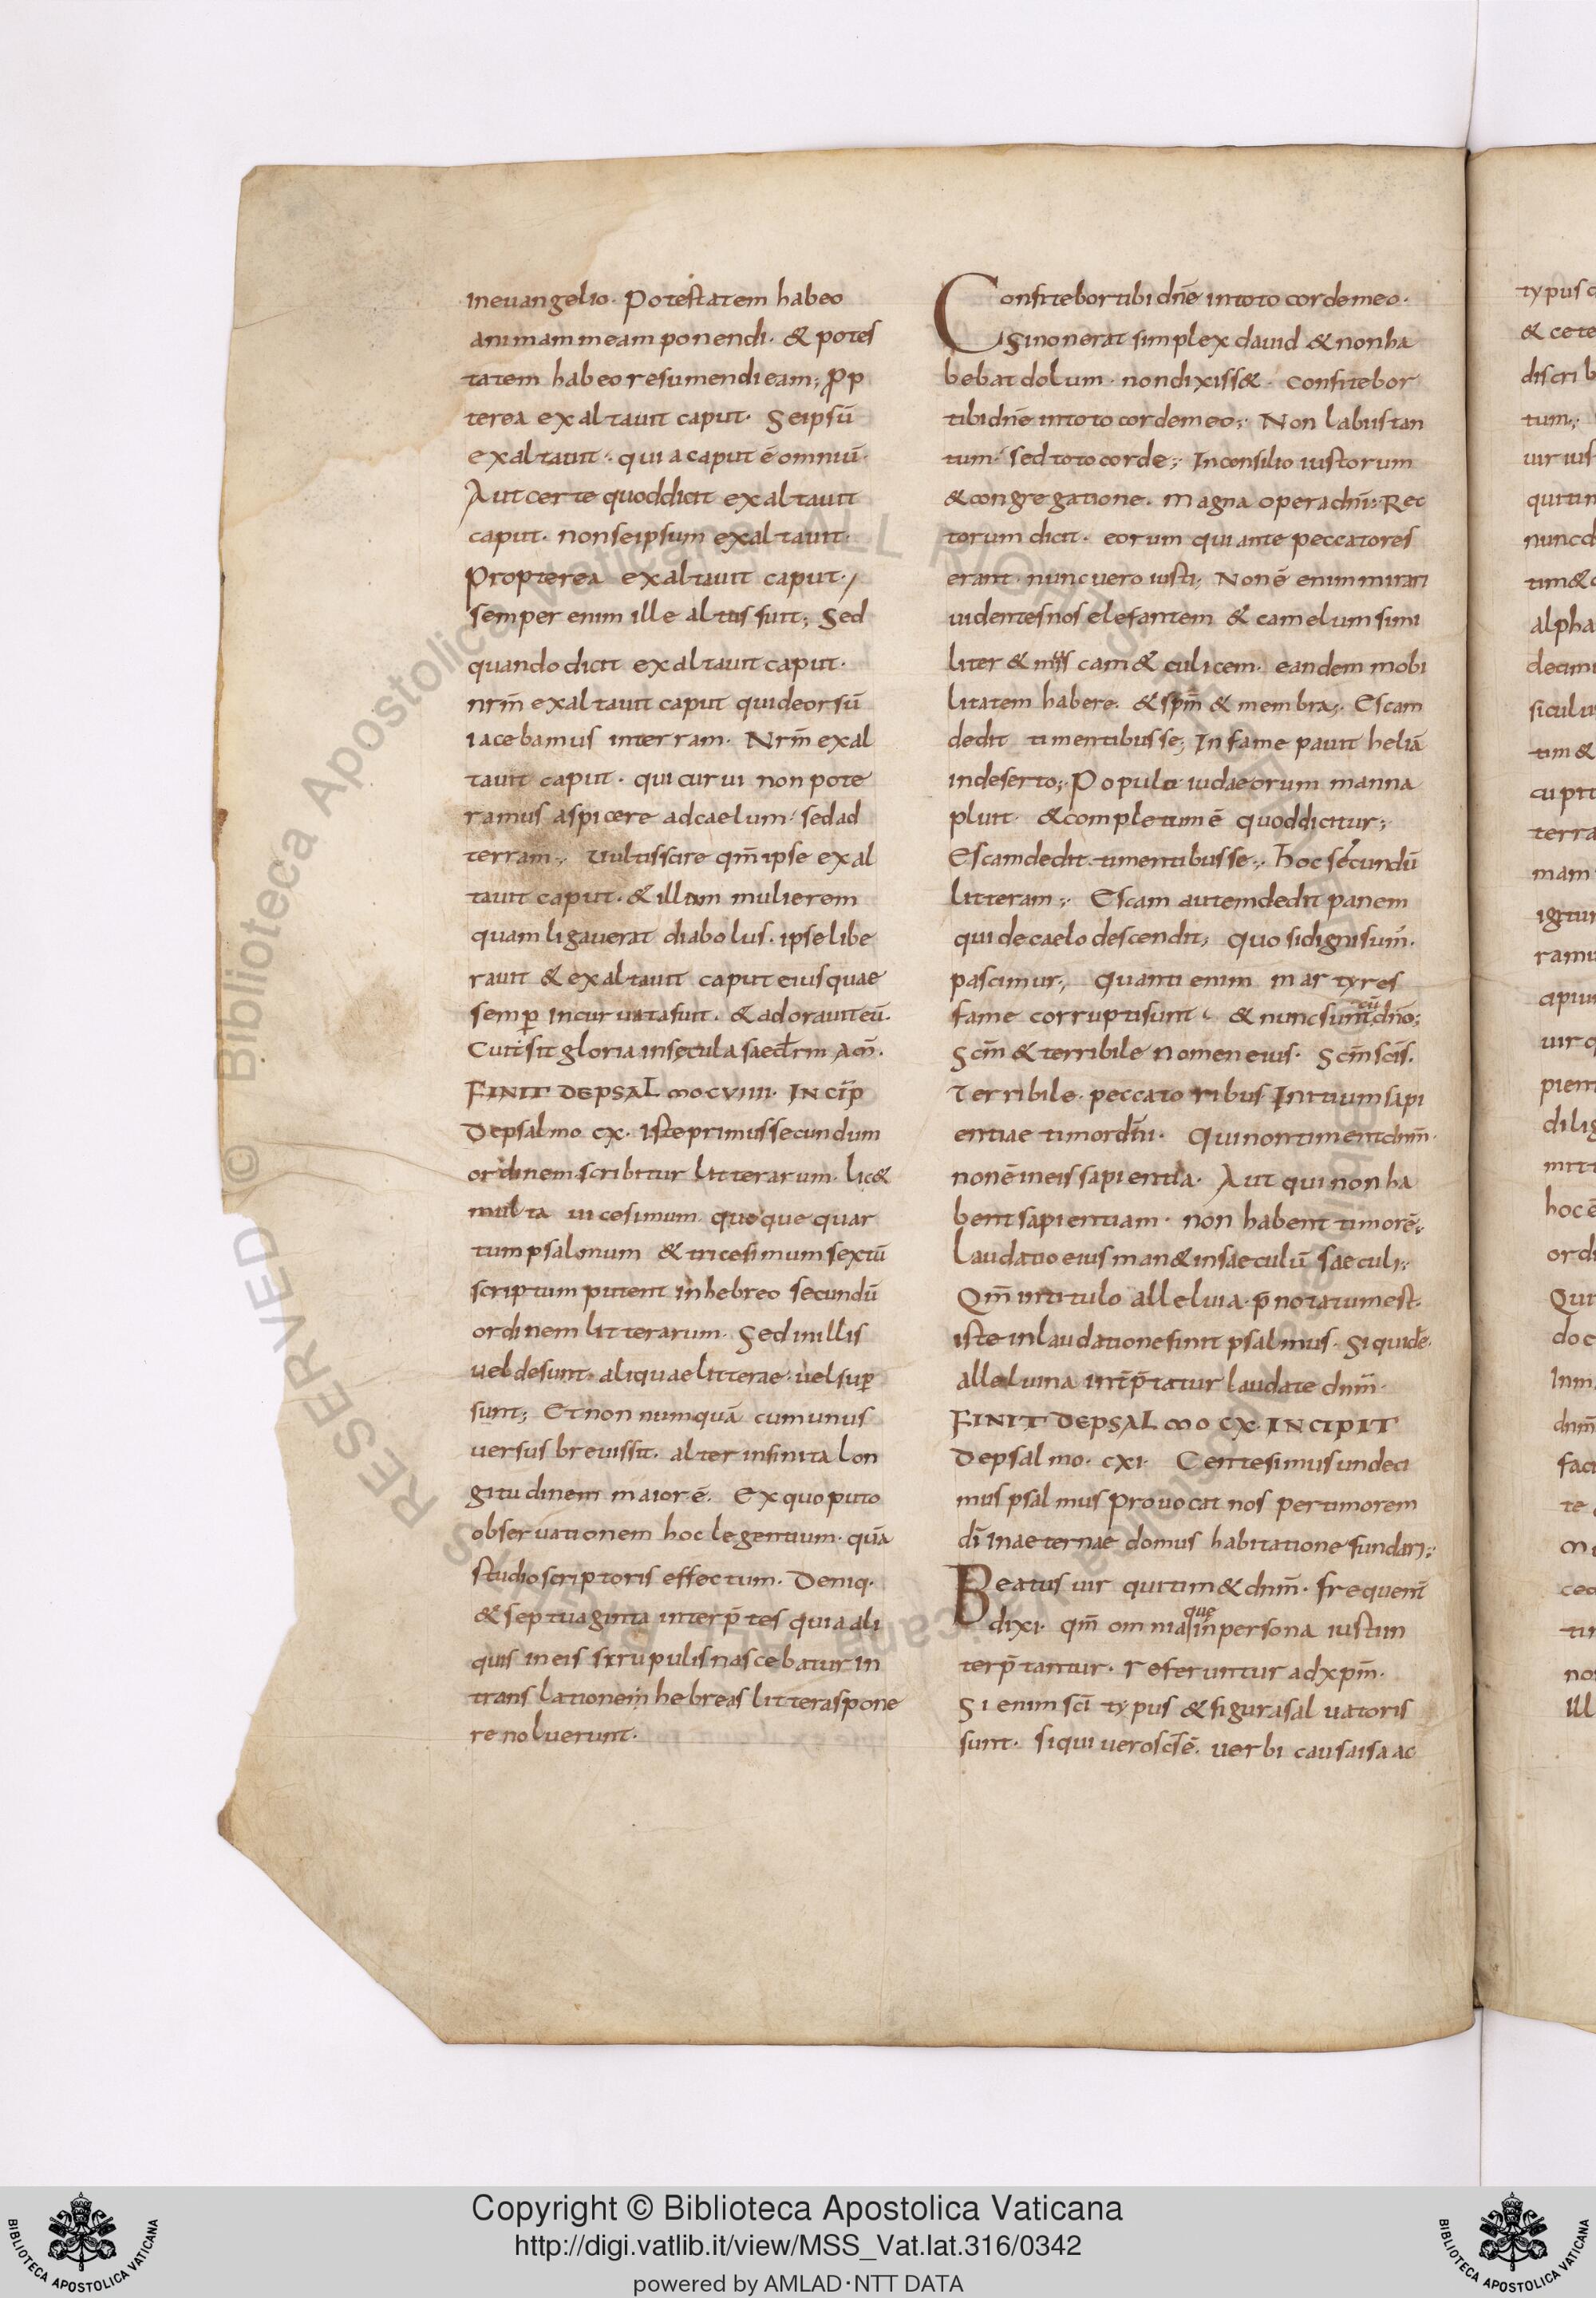 in euangelio. Potestatem habeo
animam meam ponendi. & potes
tatem habeo resumendi eam; Prop
terea exaltauit caput. Seipsū
exaltauit. quia caput ē omniū.
Aut certe quod dicit exaltauit
caput. non se ipsum exaltauit.
Propterea exaltauit caput.
semper enim ille altus fuit; Sed
quando dicit exaltauit caput.
nrm̄ exaltauit caput qui deorsū
iacebamus in terram. Nrm̄ exal
tauit caput. qui curui non pote
ramus aspicere ad caelum. sed ad
terram; Uultis scire qm̄ ipse exal
tauit caput. & illam mulierem
quam ligauerat diabolus. ipse libe
rauit & exaltauit caput eius quae
semp̄ incuruata fuit. & adorauit eū.
Cui sit gloria in secula saeclr̄m am̄.
FINIT DE PSALMO CVIIII. INCIP̄
De psalmo cx. Iste primus secundum
ordinem scribitur litterarum. lic&
multa uicesimum quoque quar
tum psalmum & tricesimum sextū
scriptum putent in hebreo secundū
ordinem litterarum. Sed in illis
uel desunt. aliquae litterae. uel sup̄
sunt; Et non numquā cum unus
uersus breuis sit. alter infinita lon
gitudinem maior ē. Ex quo puto
obseruationem hoc legentium. quā
studio scriptoris effectum. Deniq.
& septuaginta interp̄tes quia ali
quis in eis scrupulis nascebatur in
translationem hebreas litteras pone
re noluerunt.
Confitebor tibi dnē in toto corde meo.
Si non erat simplex dauid & non ha
bebat dolum. non dixiss&. confitebor
tibi dnē in toto corde meo; Non labiis tan
tum. sed toto corde; In consilio iustorum
& congregatione. magna opera dnī; Rec
torum dicit. eorum qui ante peccatores
erant. nunc uero iusti; Non ē enim mirari
uidentes nos elefantem & camelum simi
liter & cam & culicem. eandem mobi
litatem habere. & spm̄ & membra; Escam
dedit timentibus se; In fame pauit heliā
in deserto; Populo iudaeorum manna
pluit. & completum ē quod dicitur;
Escam dedit timentibus se; Hoc secundū
litteram; Escam autem dedit panem
qui de caelo descendit; quo si digni sum̄.
pascimur; Quanti enim martyres
fame corrupti sunt. & nunc sunt cū dnō;
Scm̄ & terribile nomen eius. Scm̄ scīs.
Terribile. peccatoribus Initium sapi
entiae timor dnī. Qui non timent dnm̄.
non ē in eis sapientia. Aut qui non ha
bent sapientiam. non habent timorē;
Laudatio eius man& in saeculū saeculi;
Qm̄ in titulo alleluia. p̄notatum est.
iste in laudatione finit psalmus. Siquidē.
alleluiia intp̄tatur laudate dnm̄.
FINIT DE PSALMO CX. INCIPIT
De psalmo. cxi. Centesimus undeci
mus psalmus prouocat nos per timorem
dī in aeternae domus habitatione fundari;
Beatus uir qui tim& dnm̄. frequent̄
dixi. qm̄ omnia que in persona iusti in
terp̄tantur. referuntur ad xpm̄.
Si enim scī typus & figura saluatoris
sunt. si qui uero scs̄ ē. uerbi causa isaac
typus
& cete
discrib
tum;
uir ius
qui tim
nunc d
tim&
alpha
decim
siculu
tim &
cupit
terra
mam
igitur
ramu
cipiun
uir q
pien
dilig
mitt
hoc ē
ordi
Qui
doc
In m
dnm̄
faci
te
ceo
tu
no
Ill
© Biblioteca Apostolica Vaticana ALL RIGHTS RESERVED
Copyright © Biblioteca Apostolica Vaticana
http://digi.vatlib.it/view/MSS_Vat.lat.316/0342
powered by AMLAD·NTT DATA
BIBLIOTECA APOSTOLICA VATICANA
BIBLIOTECA APOSTOLICA VATICANA